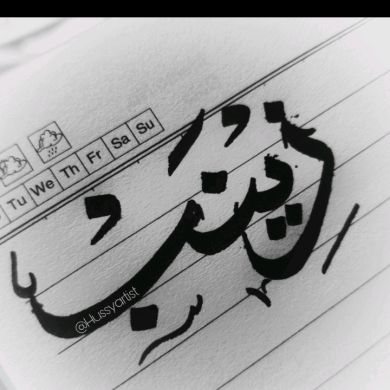 Tu We Th Fr Sa Su
زينب
@Hussyartist